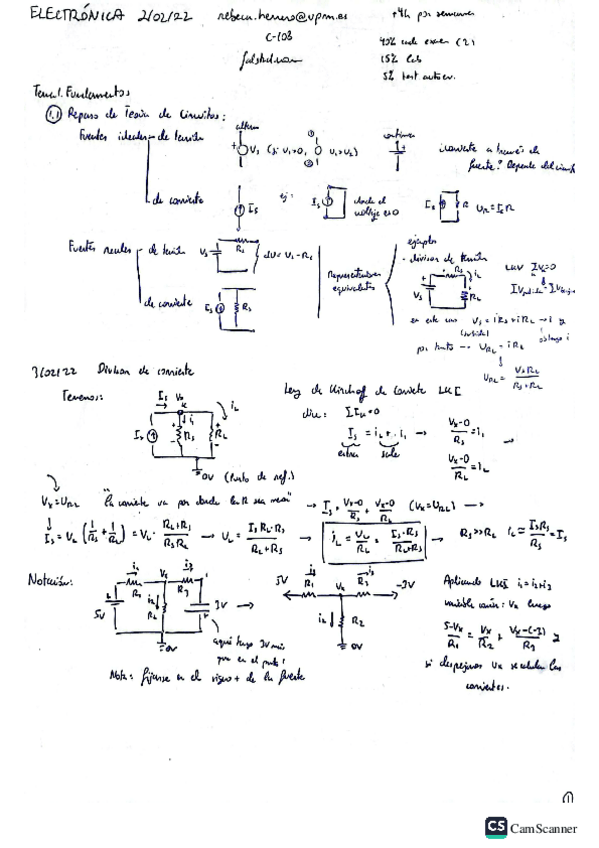 ELECTRÓNICA 2/02/22 rebeca.herrero@upm.es +4h por semana
C-103
40% cada examen (2)
15% lab
5% test autoev.
Tema 1. Fundamentos
1.1 Repaso de Teoría de Circuitos:
Fuentes ideales - de tensión
alterna
continua
+ Vs (si V1>0, V1>V2)
¿corriente a través de
fuente? Depende del circuito
de corriente
Is
ej:
Is
donde el
voltaje es 0
Is R UR = Is R
Fuentes reales - de tensión
Vs Rs
Representaciones
equivalentes
ejemplo
- divisor de tensión
Rs iL
Vs RL
LKV ΣVi=0
de corriente
Is Rs
en este caso Vs = i Rs + i RL → i y
obtengo i
por tanto → URL = i RL
URL = Vs RL / (Rs + RL)
3/02/22 Divisor de corriente
Tenemos:
Is Vx iL
Is i1 Rs RL
0V (Punto de ref.)
Ley de Kirchof de Corriente LKI
dice: ΣIK=0
Is = iL + i1 →
entra sale
(Vx-0)/Rs = i1
(Vx-0)/RL = iL
Vx=URL "la corriente va por donde la R sea menor" → Is = (Vx-0)/Rs + (Vx-0)/RL (Vx=URL) →
Is = VL (1/Rs + 1/RL) = VL · (RL+Rs)/(Rs RL) → UL = (Is RL·Rs)/(RL+Rs) → iL = UL/RL = (Is·Rs)/(RL+Rs) → Rs>>RL iL = (Is Rs)/Rs = Is
Notación:
i1 Vx i3
R1 i2 R2 R3
5V 3V
0V
aquí tengo 3V más
que en el punto 1
5V i1 R1 Vx i3 R3 -3V
i2 R2
0V
Aplicando LKI i1 = i2+i3
variable común: Vx luego
(5-Vx)/R1 = Vx/R2 + (Vx-(-3))/R3 y
si despejamos Vx se calculan las
corrientes.
Nota: fijarse en el signo + de la fuente
1
CS CamScanner